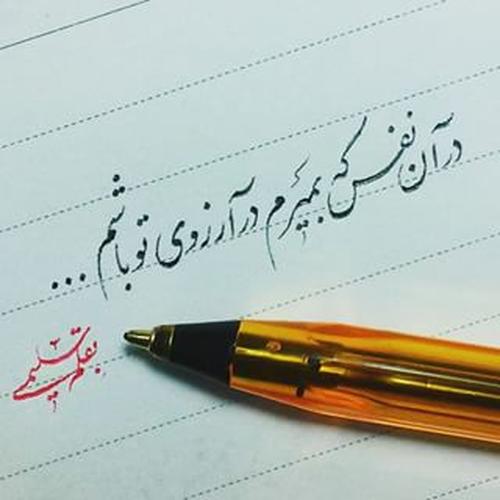 در آن نفس که بمیرم در آرزوی تو باشم ...
بقلم تسلیمی